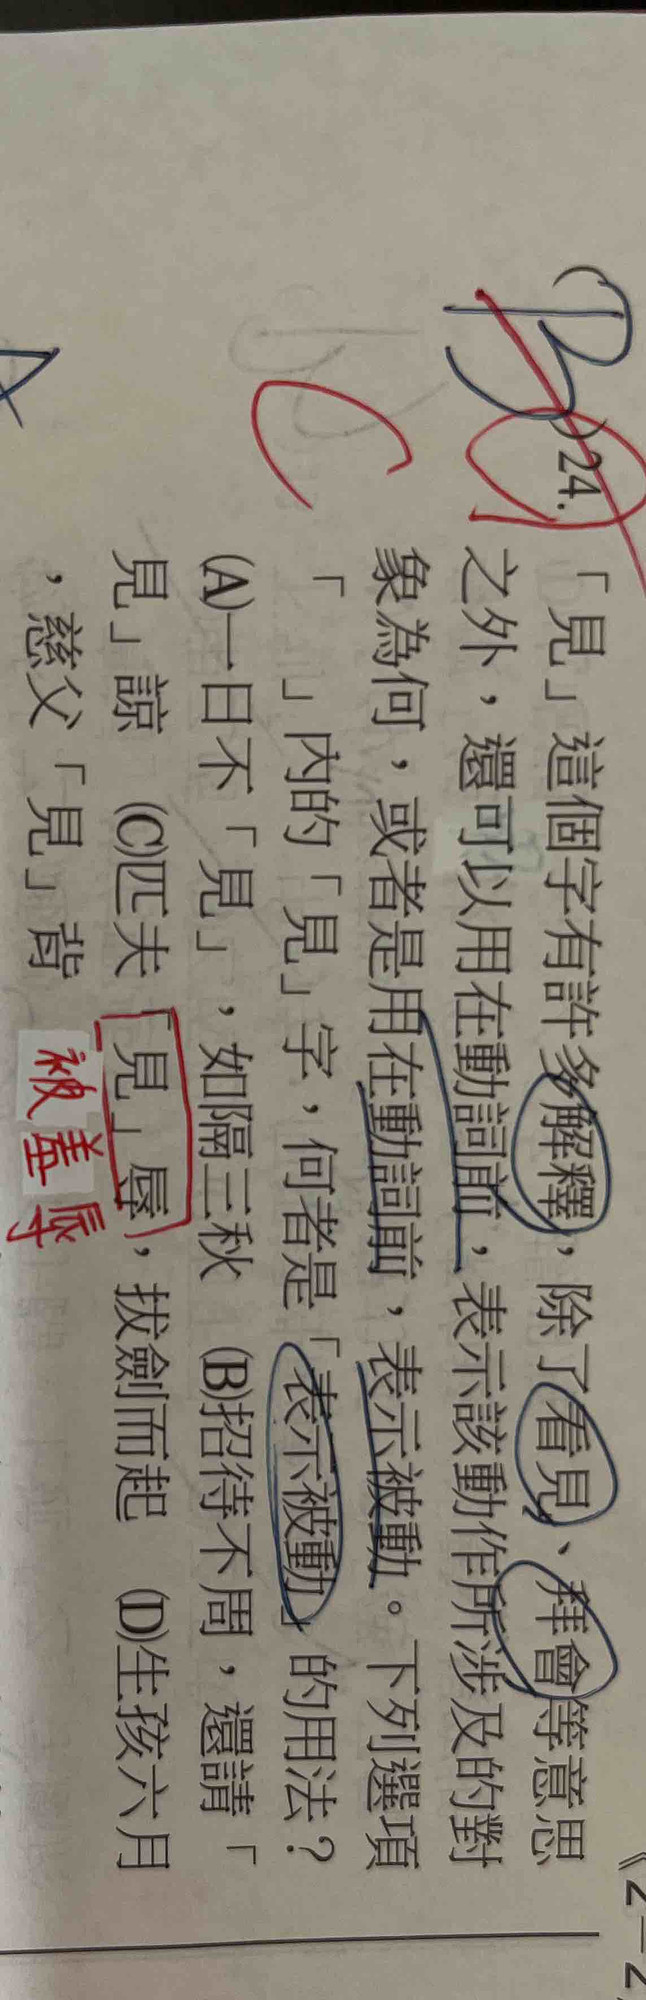 (B)24.「見」這個字有許多解釋，除了看見、拜會等意思
之外，還可以用在動詞前，表示該動作所涉及的對
象為何，或者是用在動詞前，表示被動。下列選項
「　」內的「見」字，何者是「表示被動」的用法？
(A)一日不「見」，如隔三秋 (B)招待不周，還請「
見」諒 (C)匹夫「見」辱，拔劍而起 (D)生孩六月
，慈父「見」背
C
被羞辱
A